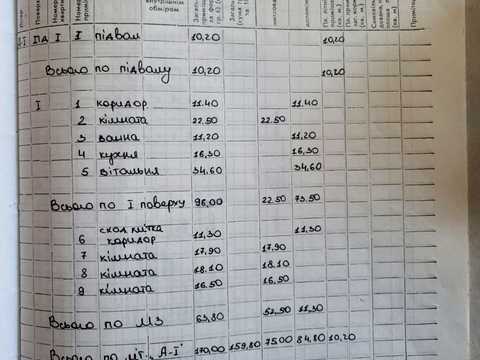 внутрішнім
обміром
I ПД I I підвал 10,20 10,20
Всього по підвалу 10,20 10,20
I 1 коридор 11.40 11.40
2 кімната 22.50 22.50
3 ванна 11,20 11.20
4 кухня 16,30 16.30
5 вітальня 34.60 34.60
Всього по I поверху 96,00 22.50 73.50
сход клітка
6 коридор 11,30 11,30
7 кімната 17,90 17.90
8 кімната 18.10 18.10
9 кімната 16.50 16.50
Всього по МЗ 63,80 52,50 11,30
Всього по літ. "А-I" 170,00 159,80 75.00 84,80 10,20